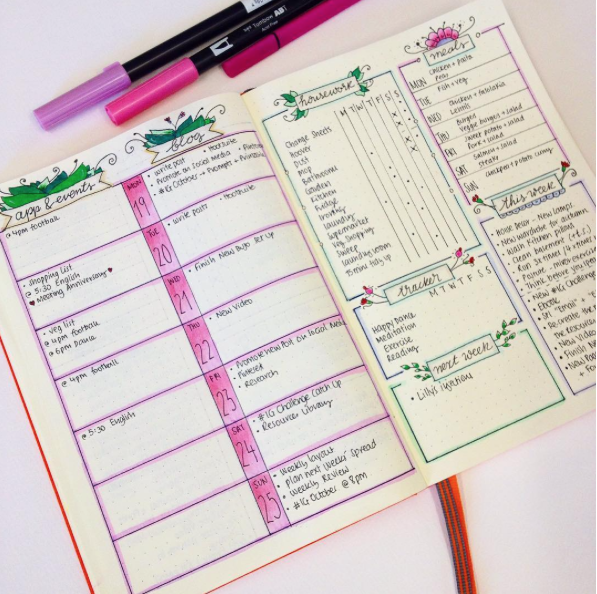 Tombow ABT
app & events
@ 4pm football
• shopping list
@ 5:30 English
Meeting Anniversary
• veg list
@ 4pm football
@ 6pm Daula
@ 4pm football
@ 5:30 English
blog
MON
19
• write post • Hootsuite
• Promote on Social Media
• #IG October → Prompts +
TUE
20
• write posts • Hootsuite
WED
21
• Finish New Bujo Set Up
THU
22
• New Video
FRI
23
• Promote new Post on Social Media
• Pinterest
• Research
SAT
24
• #IG Challenge Catch Up
• Resource Library
SUN
25
• Weekly layout
• plan next weeks' spread
• Weekly Review
• #IG October @ 8pm
housework
M T W T F S S
Change Sheets
Hoover
Dust
Mop
Bathrooms
Garden
Kitchen
Fridge
Ironing
Laundry
Supermarket
Veg Shopping
Sweep
Laundry Room
15 min tidy up
tracker
M T W T F S S
Happy Dance
Meditation
Exercise
Reading
next week
• Lilly's injection
meals
MON
Chicken + pasta
Peas
TUE
Fish + veg
WED
Chicken +
Lentil
THU
Burgers
Veggie burgers + salad
FRI
Sweet potato + salad
Pork + salad
SAT
Salmon + salad
SUN
Chickpea + potato curry
this week
• House decor - New lamps
• New wardrobe for autumn
• Wash kitchen
• Clean basement
• Run 3x times
• Think before you
• New #IG Challenge
• New Video
• Finish New